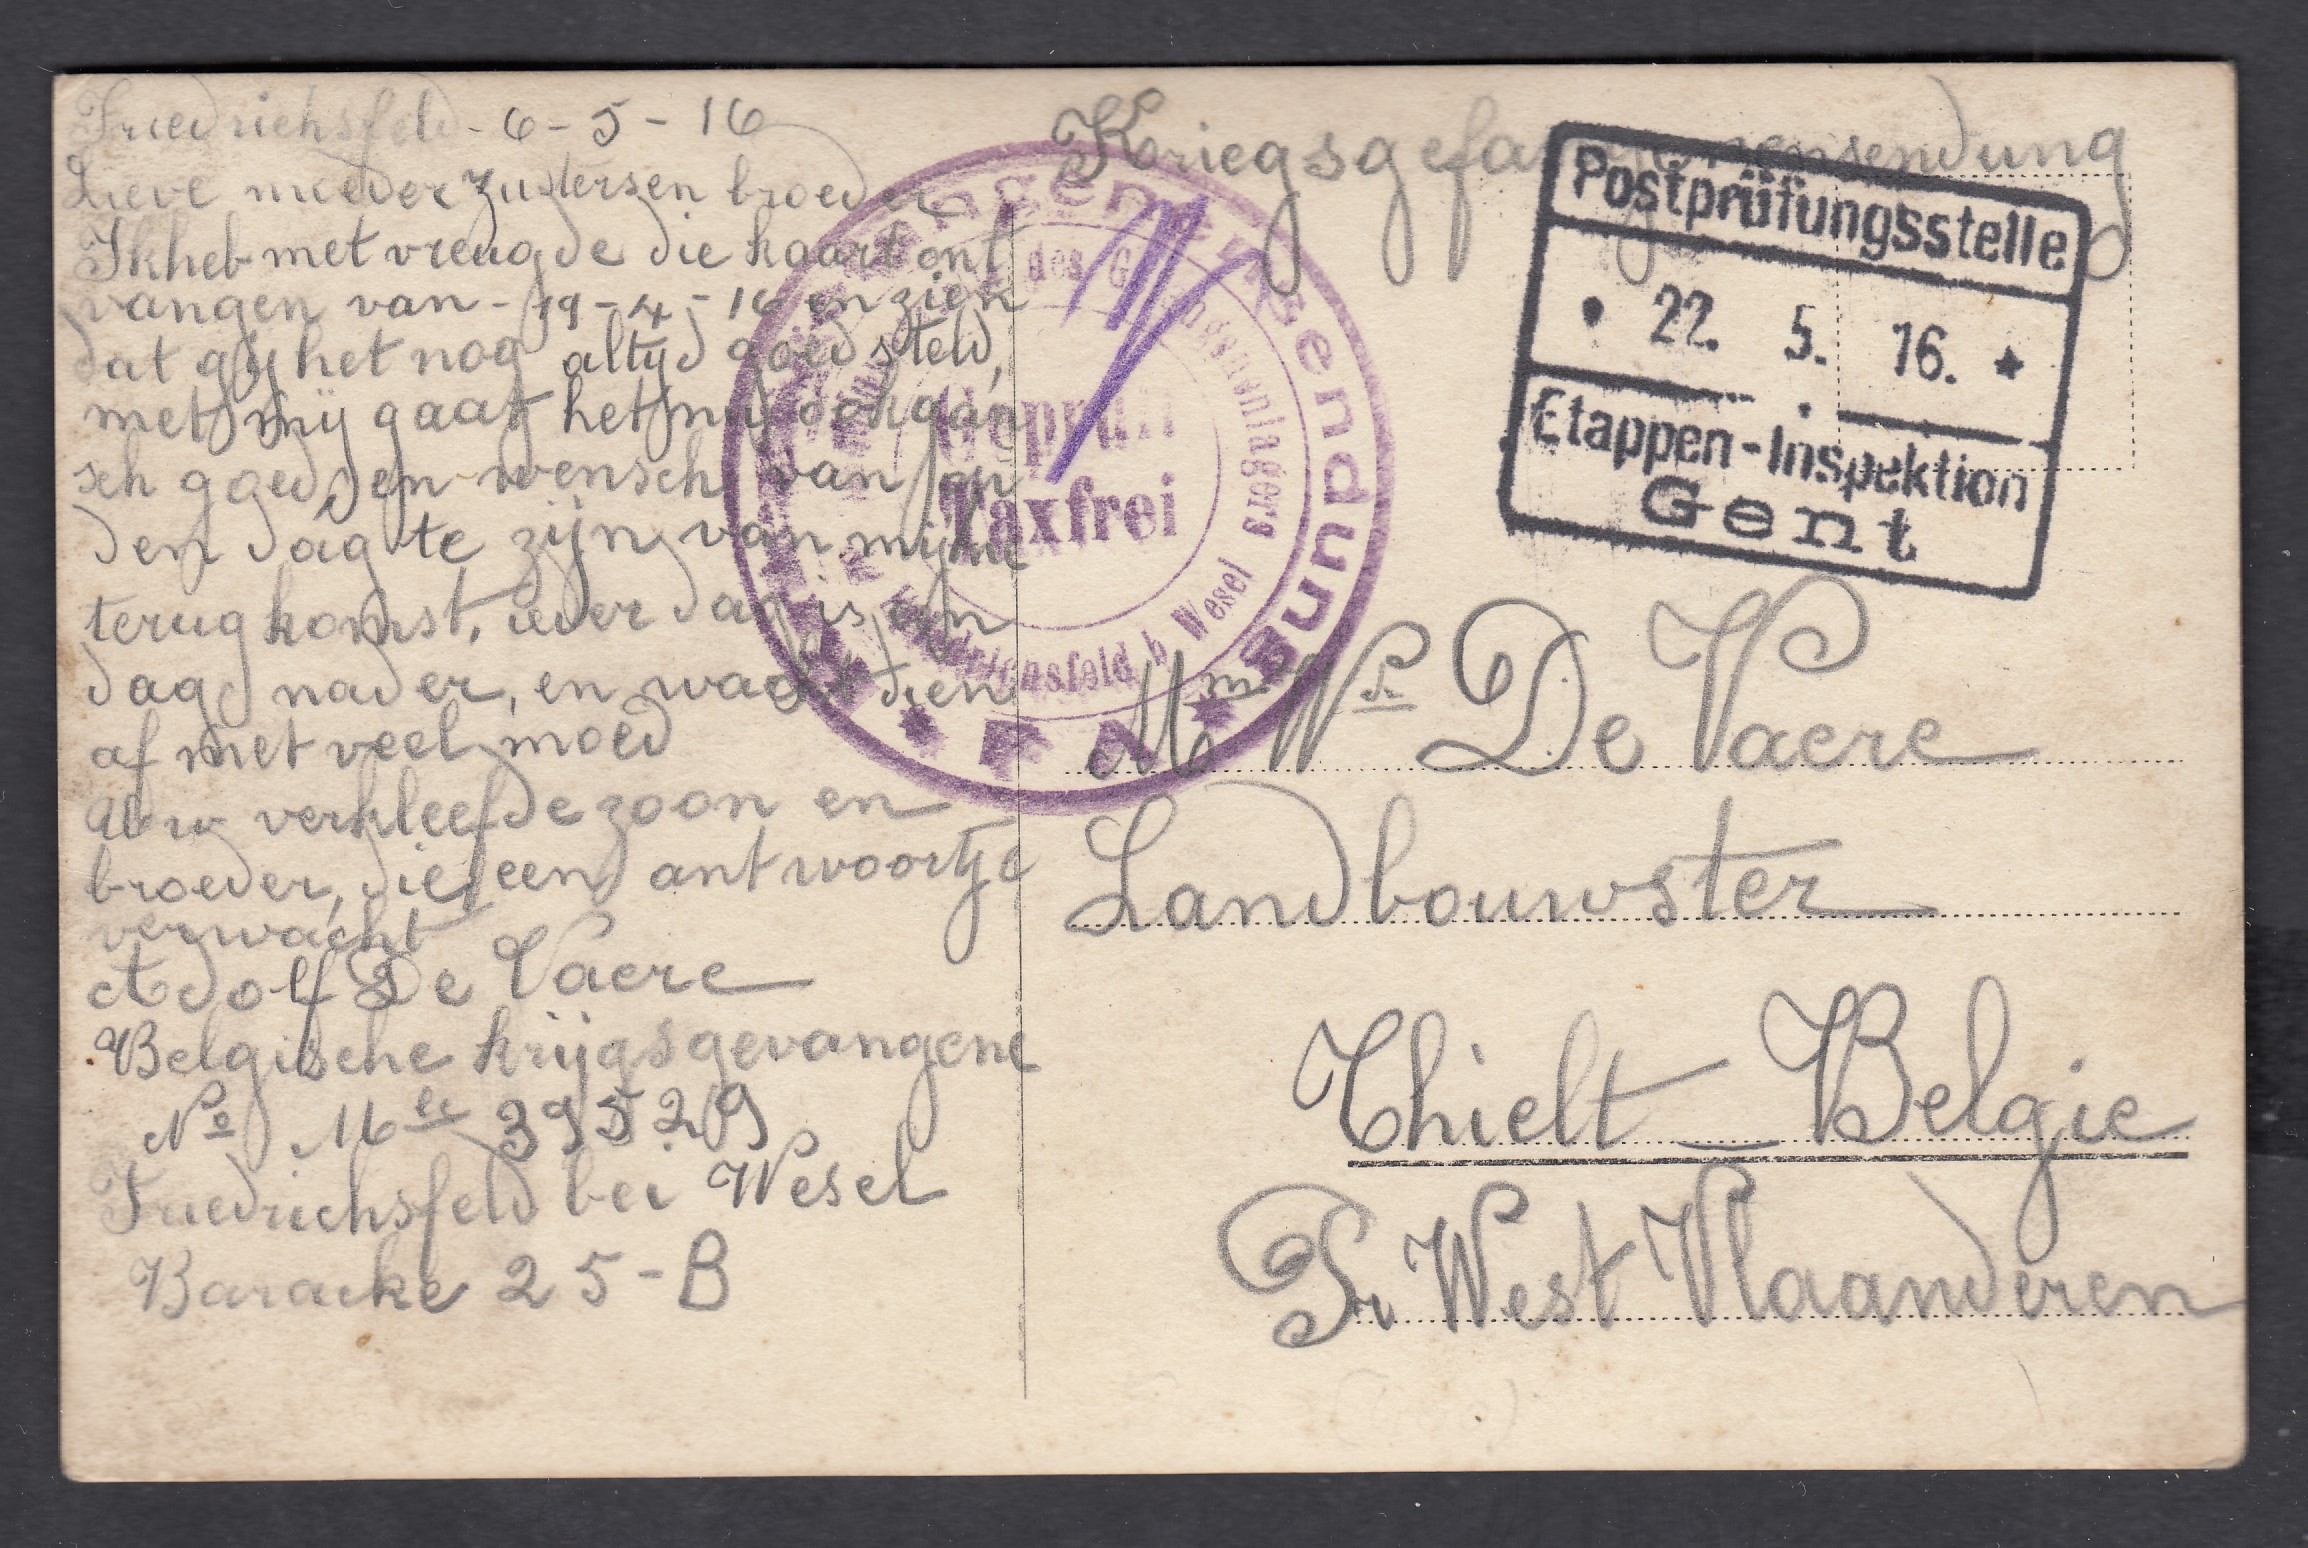 Friedrichsfeld - 6 - 5 - 16
Lieve moeder zusters en broeder
Ik heb met vreugde die kaart ont
vangen van - 19 - 4 - 16 en zien
dat gij het nog altijd goed steld,
met mij gaat het nu ook gan
sch goed, en wensch van
den dag te zijn van mijne
terugkomst, ieder dag is een
dag nader, en wacht dien
af met veel moed
Uw verkleefde zoon en
broeder, die een antwoortje
verwacht
Adolf De Vaere
Belgische krijgsgevangene
No Mle 39529
Friedrichsfeld bei Wesel
Baracke 25 - B
Kriegsgefangenensendung
Gefangenensendung
des Gefangenenlagers
Friedrichsfeld b Wesel
Geprüft
Taxfrei
Postprüfungsstelle
22. 5. 16.
Etappen-Inspektion
Gent
Mm We De Vaere
Landbouwster
Thielt - Belgie
Pr West Vlaanderen